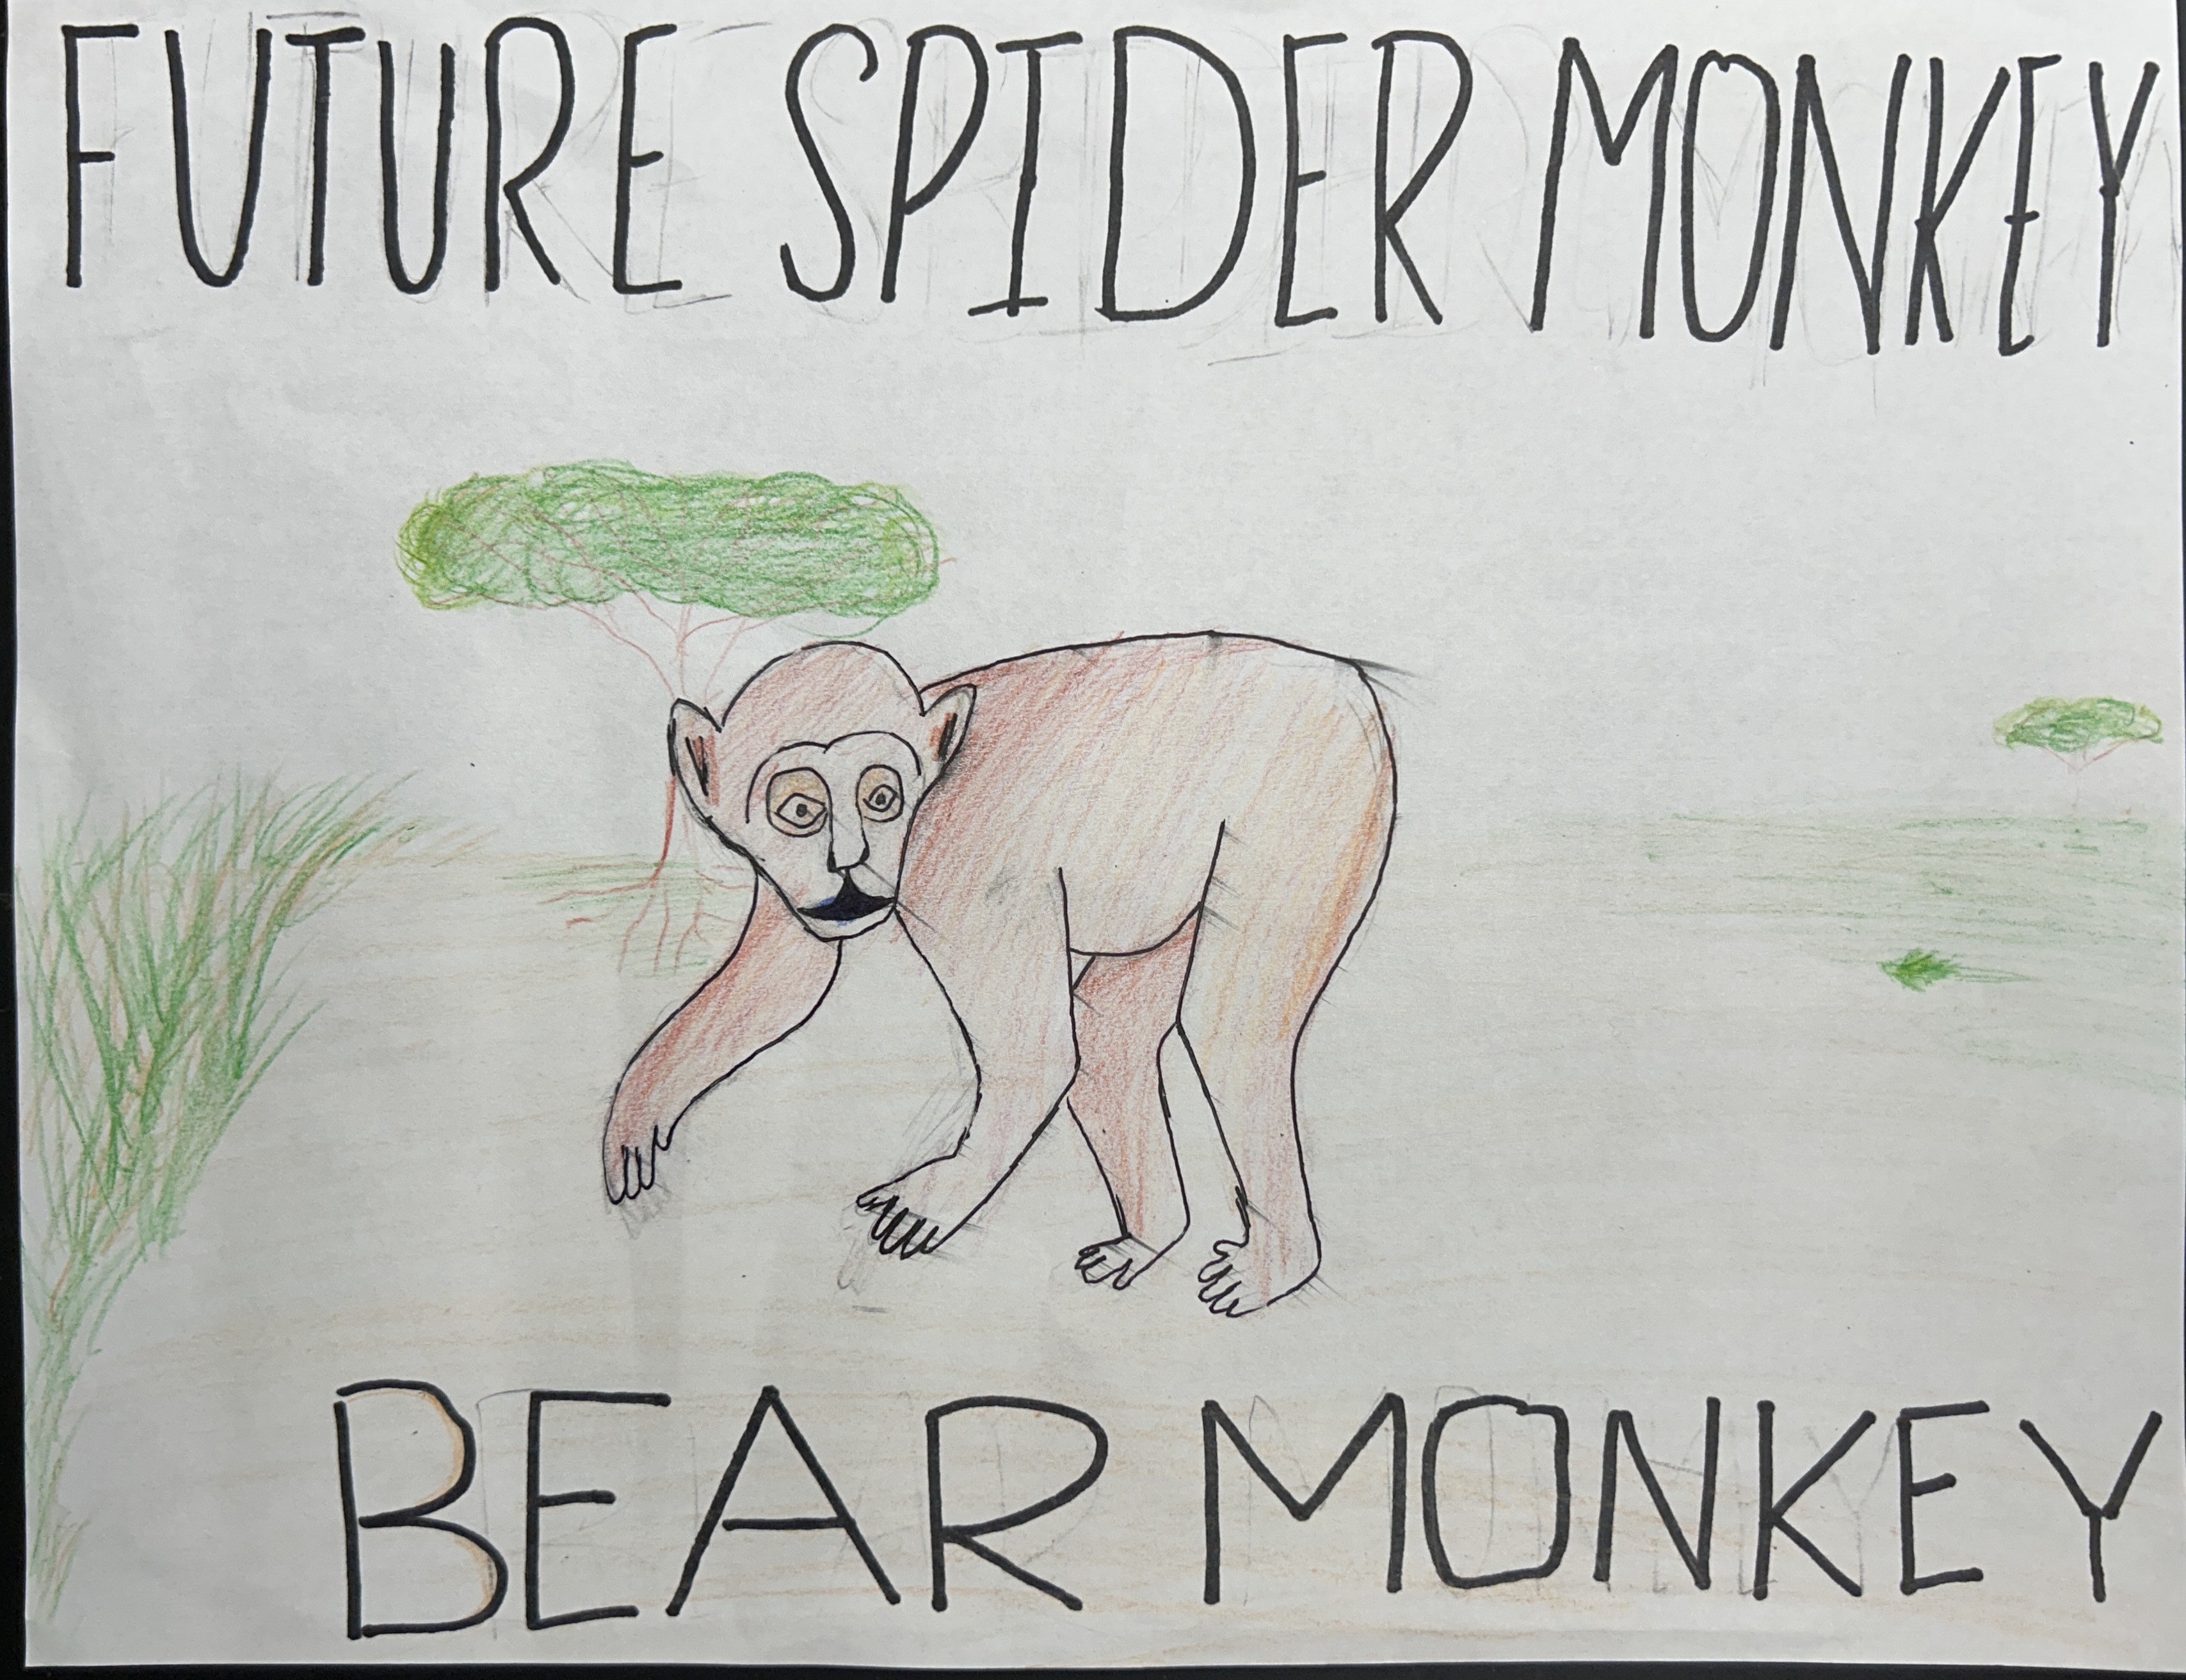 FUTURE SPIDER MONKEY
BEAR MONKEY